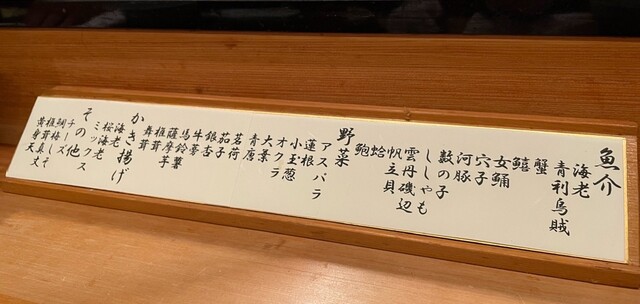 魚介
海老
青利烏賊
蟹
鱚
女鯒
穴子
河豚
数の子
ししゃも
雲丹磯辺
帆立貝
蛤
鮑
野菜
アスパラ
蓮根
小玉葱
オクラ
大葉
青唐
茗荷
茄子
銀杏
牛蒡
馬鈴薯
薩摩芋
椎茸
舞茸
かき揚げ
海老
桜海老
ミックス
その他
チーズ
鯛梅しそ
椎茸真丈
黄身天